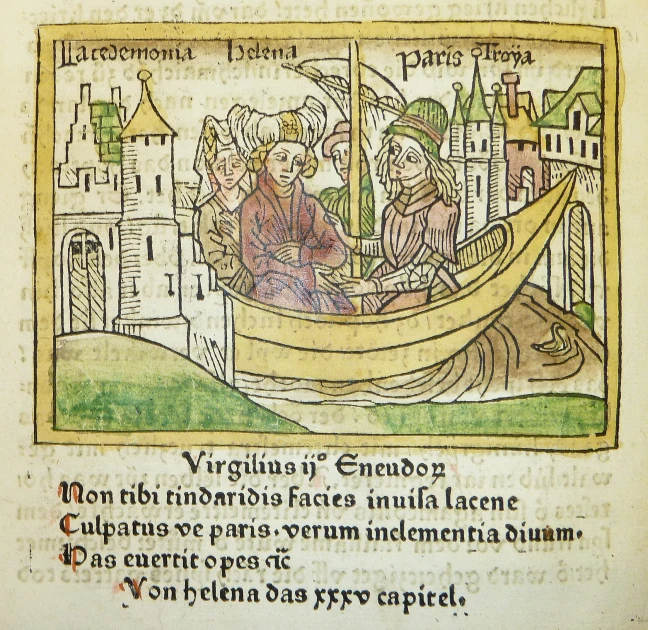 Lacedemonia helena paris Troÿa
Virgilius ijº Eneudoꝝ
Non tibi tindaridis facies inuiſa lacene
Culpatus ve paris. verum inclementia diuum.
Has euertit opes ⁊c̄
Von helena das xxxv capitel.